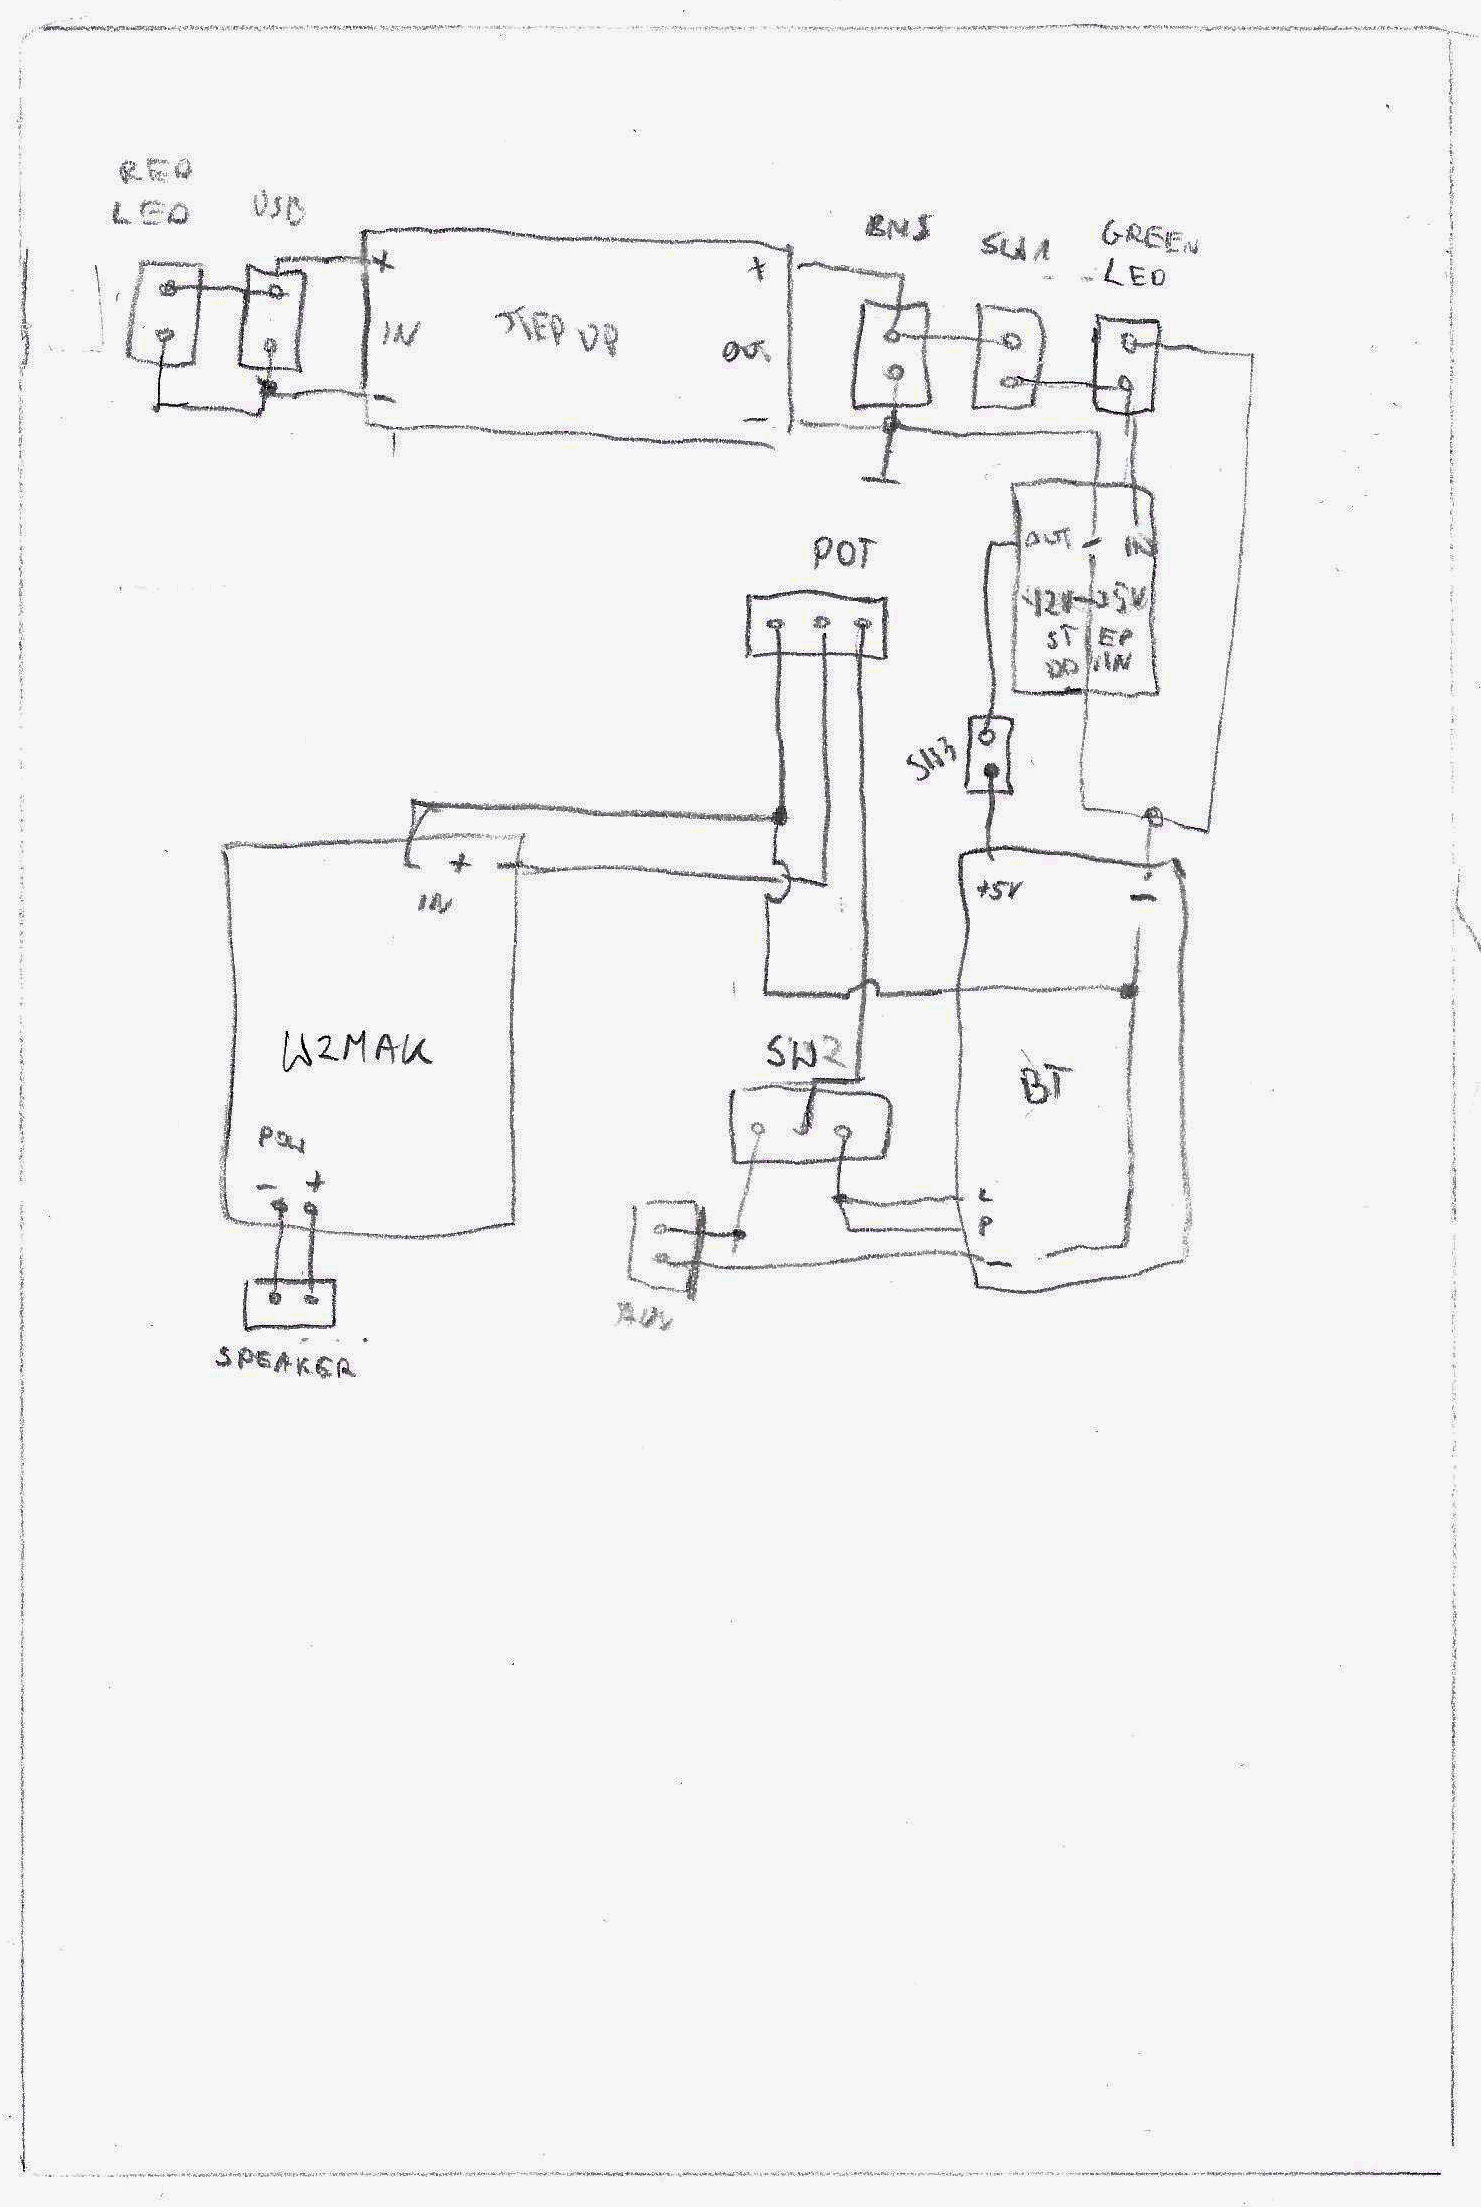 RED
LED
USB
+
IN
-
STEP UP
+
OUT
-
BMS
SW1
GREEN
LED
OUT - IN
12V→5V
ST EP
DO WN
POT
SW3
+ -
IN
WZMAK
POW
- +
SPEAKER
+5V -
BT
L
P
-
SW2
AUX